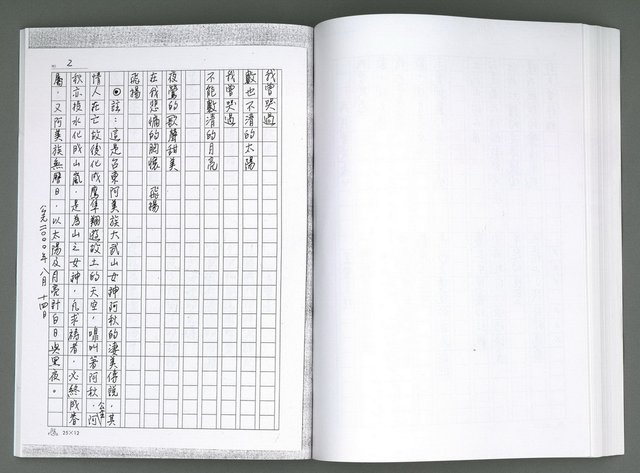 2
我曾哭過
數也不清的太陽
我曾哭過
不能數清的月亮
夜鶯的歌聲甜美
在我悲慟的胸懷 飛揚
飛揚
◎註：這是台東阿美族大武山女神阿秋的淒美傳說，其
情人在亡故後化成鷹隼翱遊故土的天空，鳴叫著阿秋，阿
秋亦積水化成山嵐，是為山之女神，凡求禱者，必終成眷
屬，又阿美族無曆日，以太陽及月亮計白日與黑夜。
公元二000年八月十四日
25×12